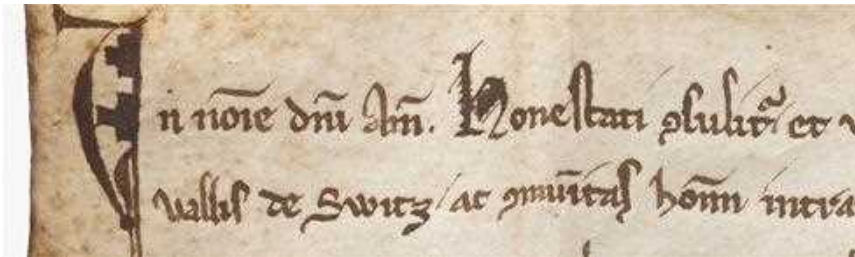 In nōıe dnı̄ Am̄. Honestati ꝯsulit᷑ et v
vallis de Switz / ac ꝯmūitas hoı̄m intra